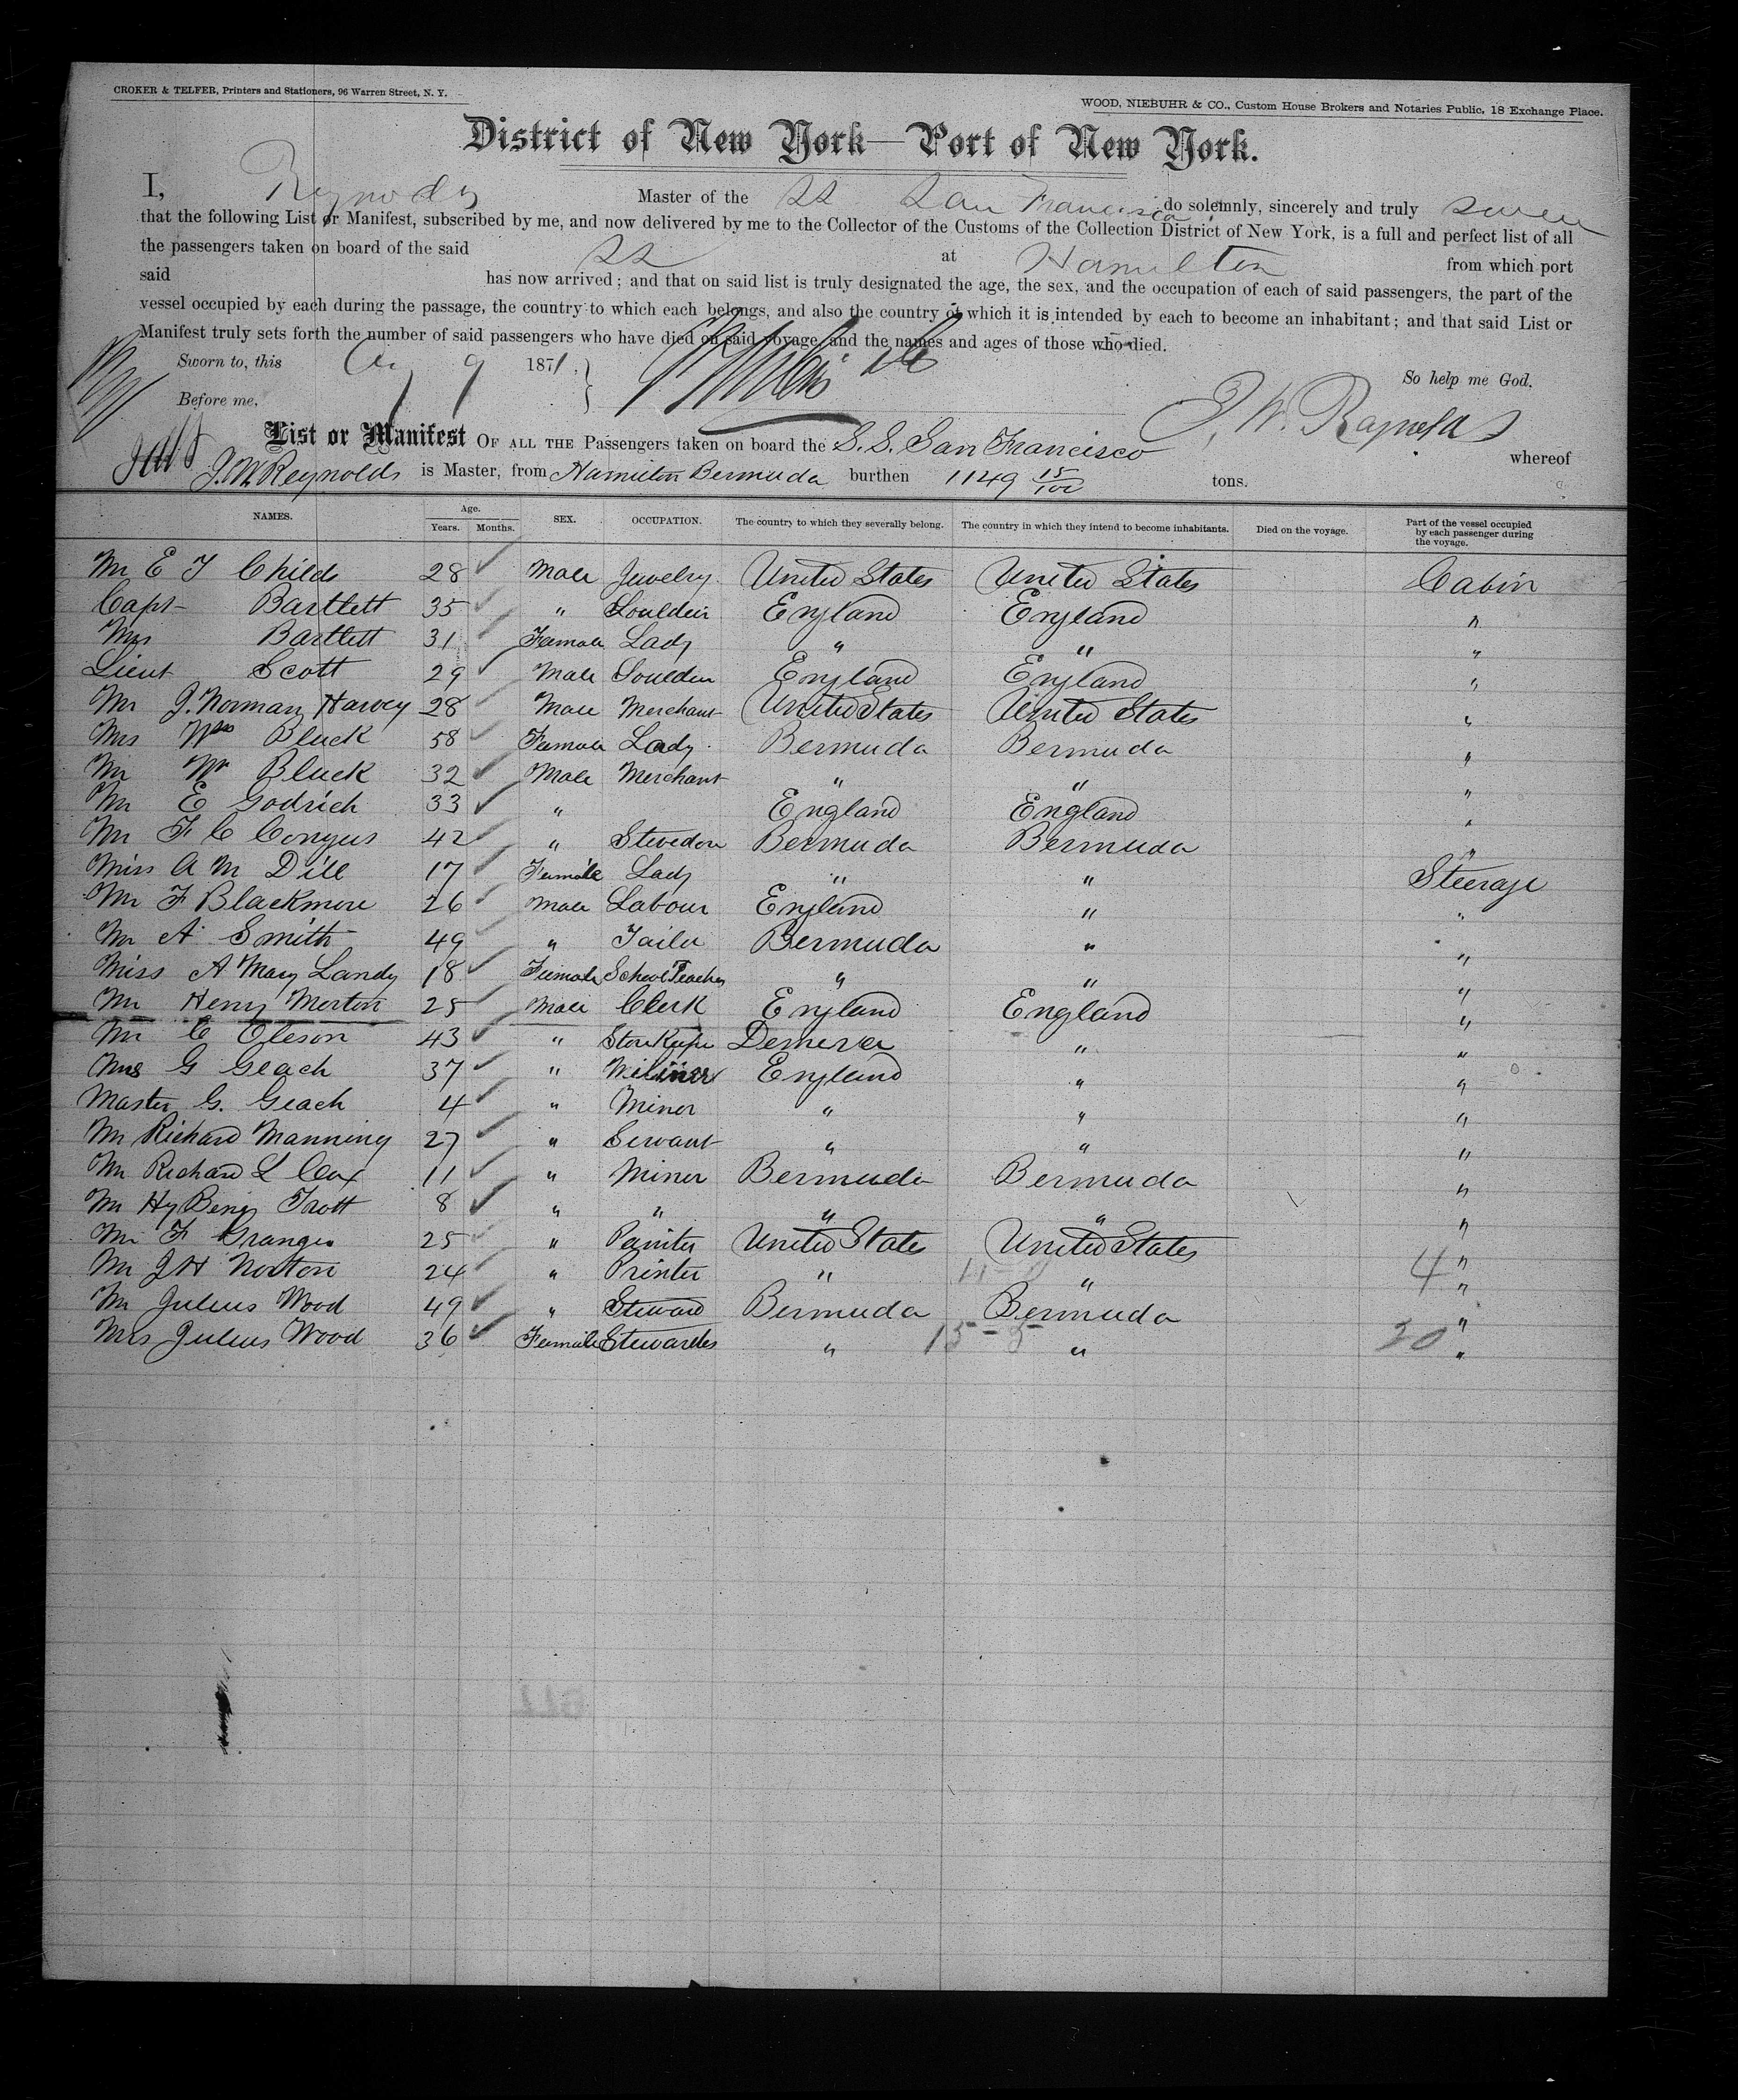 CROKER & TELFER, Printers and Stationers, 96 Warren Street, N. Y.
WOOD, NIEBUHR & CO., Custom House Brokers and Notaries Public, 18 Exchange Place.
District of New York—Port of New York.
I, Reynolds Master of the SS San Francisco do solemnly, sincerely and truly swear
that the following List or Manifest, subscribed by me, and now delivered by me to the Collector of the Customs of the Collection District of New York, is a full and perfect list of all
the passengers taken on board of the said SS at Hamilton from which port
said has now arrived; and that on said list is truly designated the age, the sex, and the occupation of each of said passengers, the part of the
vessel occupied by each during the passage, the country to which each belongs, and also the country of which it is intended by each to become an inhabitant; and that said List or
Manifest truly sets forth the number of said passengers who have died on said voyage, and the names and ages of those who died.
Sworn to, this 9 1871. So help me God.
Before me, J. W. Reynolds
List or Manifest OF ALL THE Passengers taken on board the S. S. San Francisco whereof
J. W. Reynolds is Master, from Hamilton Bermuda burthen 1149 15/100 tons.
NAMES. Age. Years. Months. SEX. OCCUPATION. The country to which they severally belong. The country in which they intend to become inhabitants. Died on the voyage. Part of the vessel occupied by each passenger during the voyage.
Mr E T Childs 28 Male Jewelry United States United States Cabin
Capt Bartlett 35 " Souldier England England "
Mrs Bartlett 31 Female Lady " " "
Lieut Scott 29 Male Souldier England England "
Mr J. Norman Harvey 28 Male Merchant United States United States "
Mrs Wm Bluck 58 Female Lady Bermuda Bermuda "
Mr Wm Bluck 32 Male Merchant " " "
Mr E Godrich 33 " England England "
Mr F C Conyus 42 " Stevedon Bermuda Bermuda "
Miss A M Dill 17 Female Lady " " Steerage
Mr F Blackmore 26 Male Labour England " "
Mr A Smith 49 " Tailor Bermuda " "
Miss A Mary Landy 18 Female School Teacher " " "
Mr Henry Morton 25 Male Clerk England England "
Mr C Oleson 43 " Store Keeper " "
Mrs G Geach 37 " England " "
Master G. Geach 4 " Minor " " "
Mr Richard Manning 27 " Servant " " "
Mr Richard L Cox 11 " Minor Bermuda Bermuda "
Mr Hy Benj Trott 8 " " " " "
Mr F Granger 25 " Painter United States United States "
Mr J H Norton 24 " Printer " " 4 "
Mr Julius Wood 49 " Steward Bermuda Bermuda "
Mrs Julius Wood 36 Female Stewardes " 15-5 " 20 "